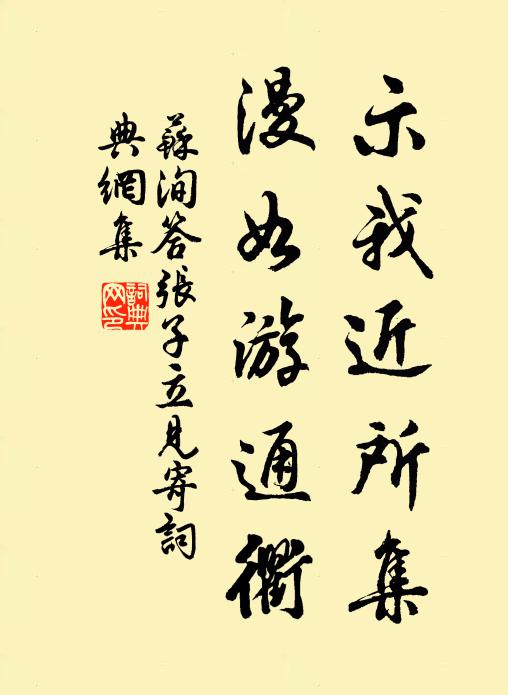 示我近所集
漫如游通衢
蘇洵答張子立見寄詞
典網集
詞典網印